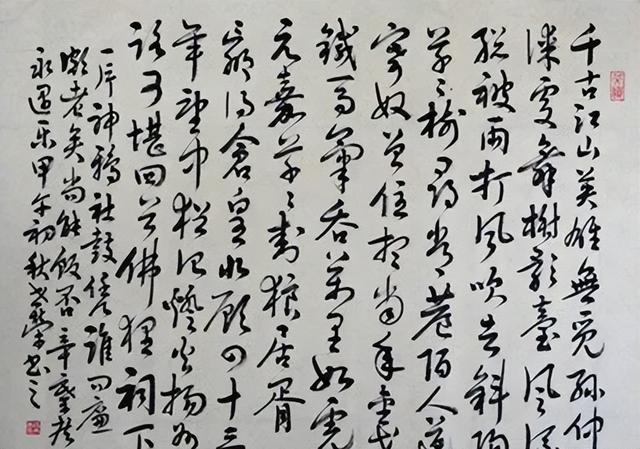 千古江山英雄無覓孫仲
謀處舞榭歌臺風流
總被雨打風吹去斜陽
草々樹尋常巷陌人道
寄奴曾住想當年金戈
鐵馬氣吞萬里如虎
元嘉草々封狼居胥
贏得倉皇北顧四十三
年望中猶記燈火揚州
路可堪回首佛狸祠下
一片神鴉社鼓憑誰問廉
頗老矣尚能飯否辛棄疾
永遇樂甲午初秋榮書之